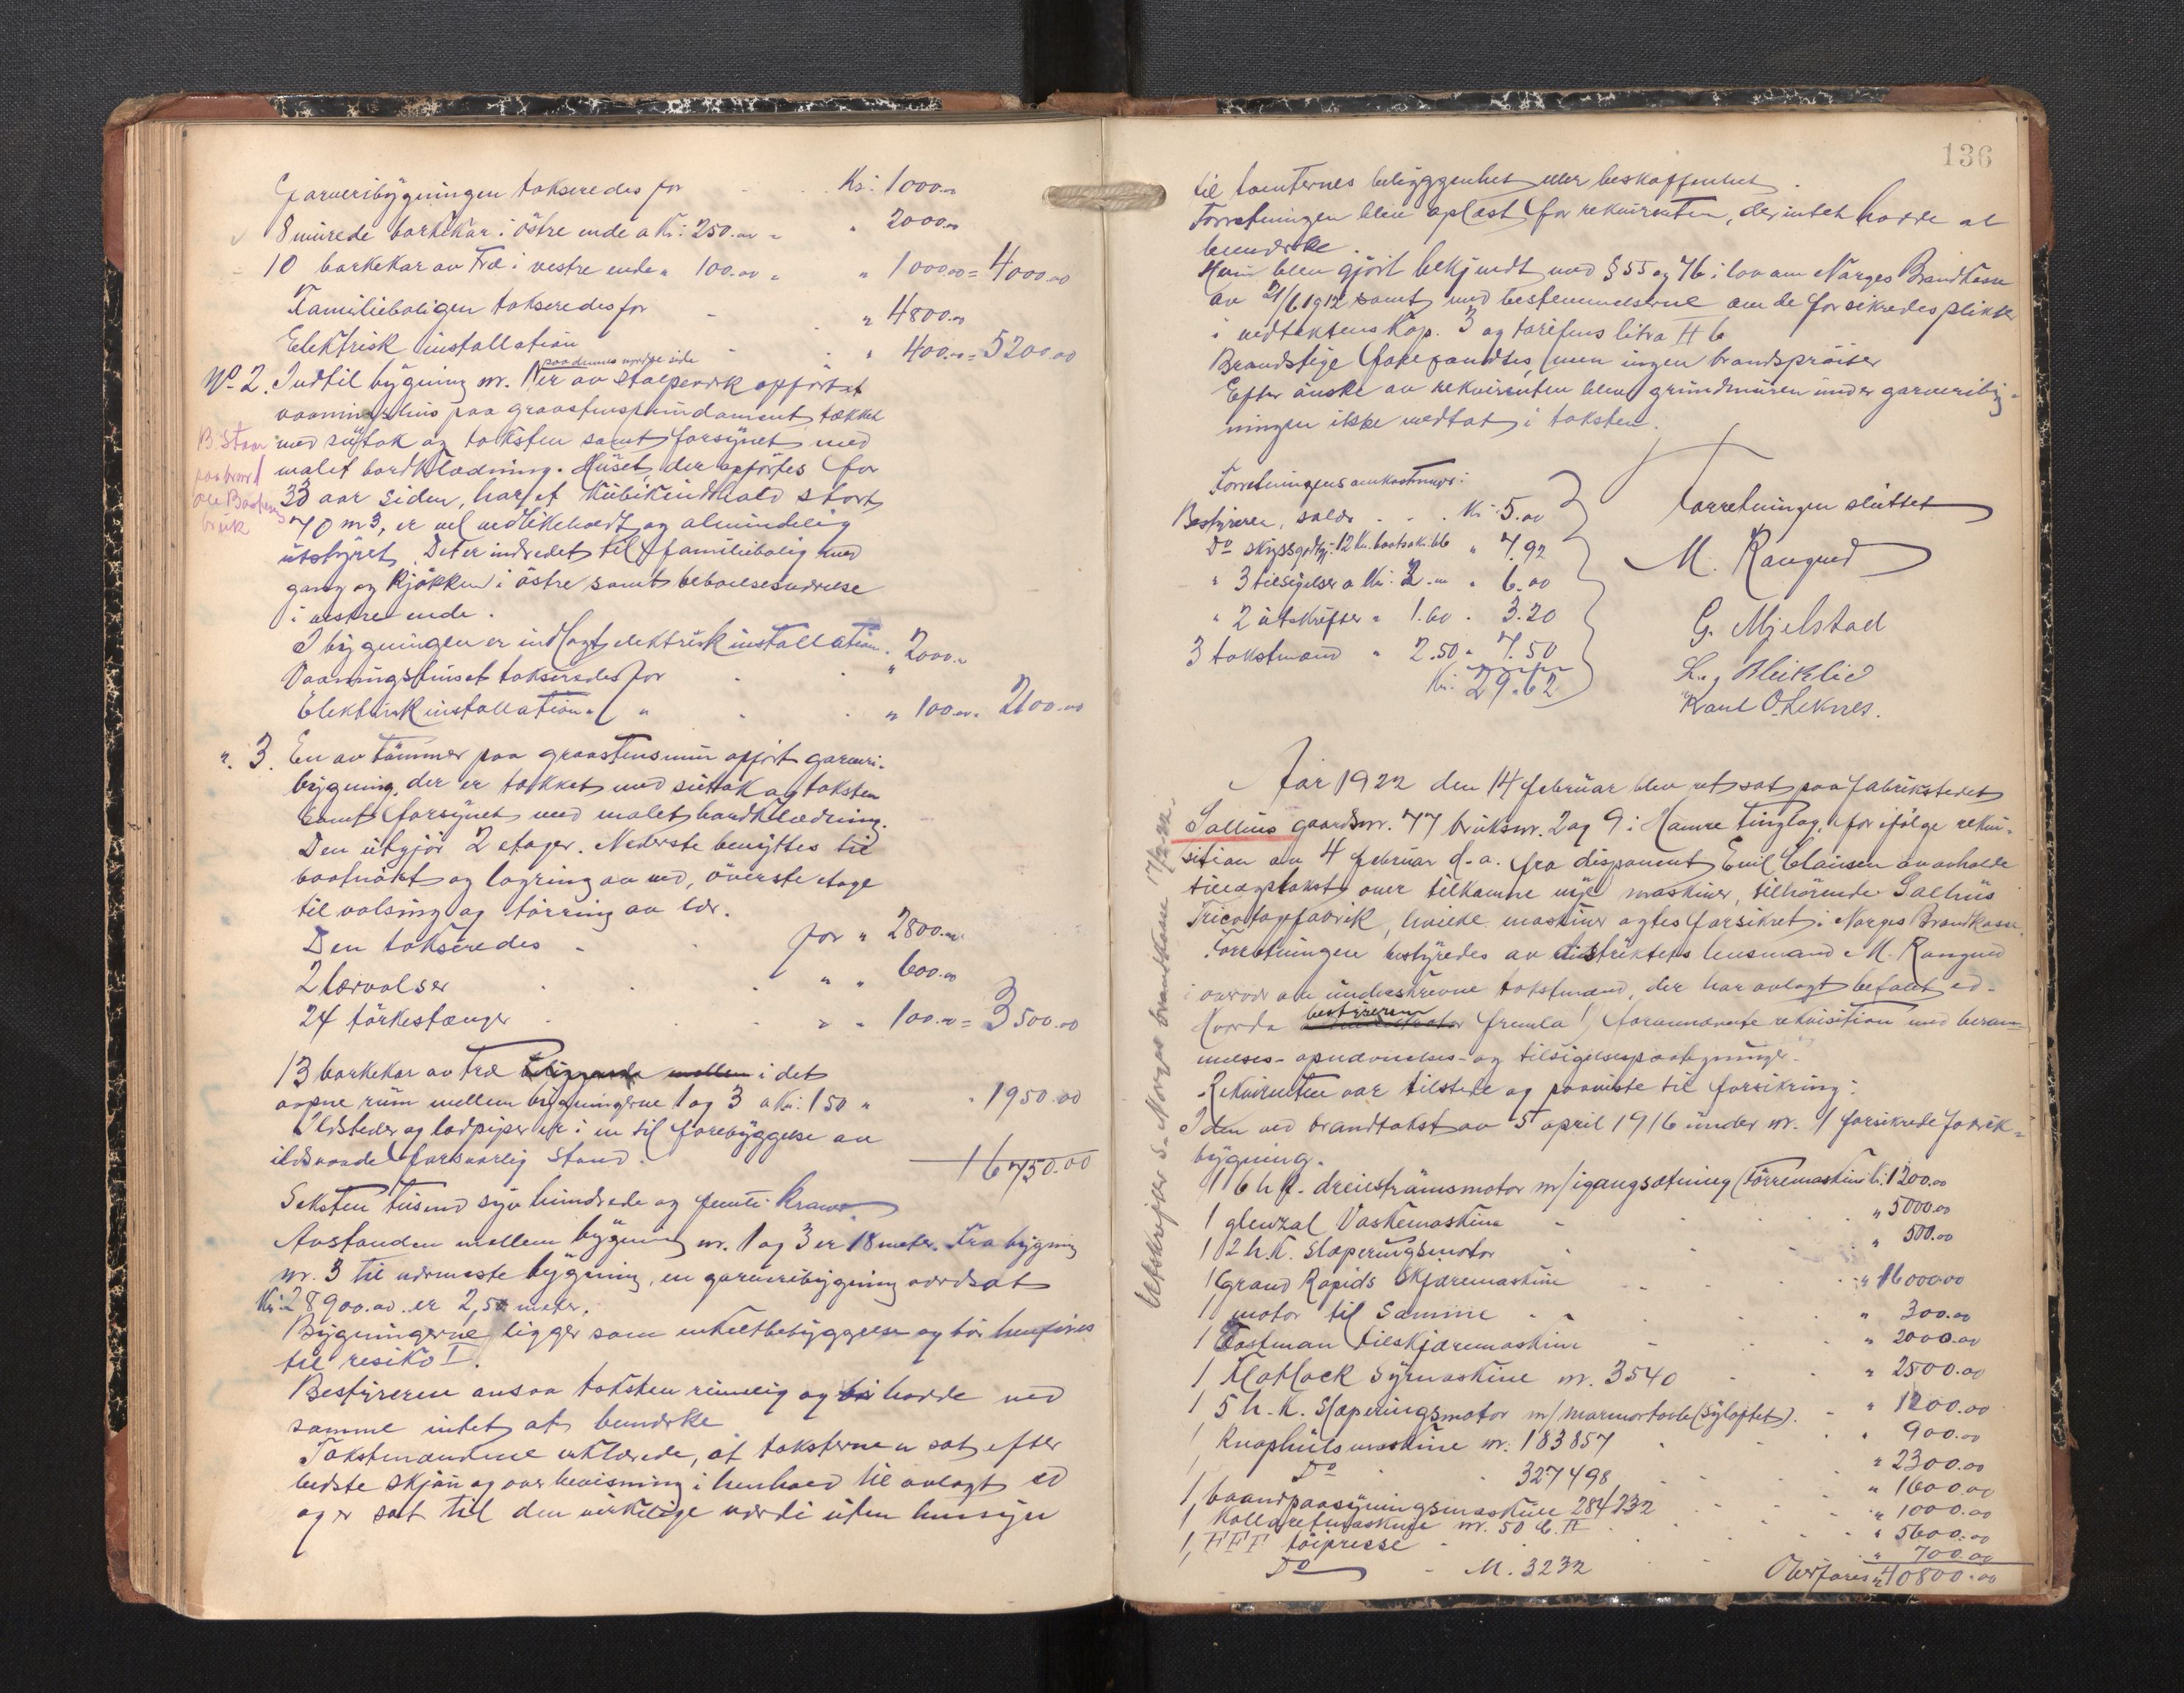 Garveribygningen takseredes for Kr: 1000.00
8 murede barkekar i östre ende a Kr: 250.00 = " 2000.00
10 barkekar av Træ i vestre ende " 100.00 = " 1000.00 = 4000.00
Familieboligen takseredes for " 4800.00
Elektrisk installation " 400.00 = 5200.00
paa dennes nordre side
No 2. Indtil bygning nr. 1 er av stolpeverk opført et
vaaningshus paa graastensfundament, tækket
med sutak og taksten samt forsynet med
malet bordklædning. Huset, der opførtes for
33 aar siden, har et kubikindhold stort
70 m3, er vel vedlikeholdt og almindelig
utstyret. Det er indredet til familiebolig med
gang og kjökken i östre samt beboelsesværelse
i vestre ende.
B. staar
paa grund
bruk
I bygningen er indlagt elektrisk installation.
Vaaningshuset takseredes for " 2000.00
Elektrisk installation " " " 100.00 = 2100.00
". 3. En av tömmer paa graastensmur opfört garveri-
bygning, der er tækket med sutak og taksten
samt forsynet med malet bordklædning.
Den utgjör 2 etager. Nederste benyttes til
baatnöst og lagring av ved, överste etage
til valsing og törring av lær.
Den takseredes for " 2800.00
2 lærvalser " " 600.00
24 törkestænger " " 100.00 = 3500.00
13 barkekar av Træ i det
aapne rum mellem bygningerne 1 og 3 a Kr: 150 " " 1950.00
Ildsteder og ladpiper er i en til forebyggelse av
ildsvaade forsvarlig stand. 16750.00
Seksten tusend syv hundrede og femti Kroner
Avstanden mellem bygning nr. 1 og 3 er 18 meter. Fra bygning
nr. 3 til nærmeste bygning, en garveribygning værdsat
Kr: 28900.00 er 2,50 meter.
Bygningerne ligger som enkeltbebyggelse og bör henföres
til resiko I.
Bestyreren ansaa taksten rimelig og hadde ved
samme intet at bemerke
Takstmændene erklærede, at taksterne er sat efter
bedste skjön og overbevisning i henhold til avlagt ed
og er sat til den virkelige værdi uten hensyn
136
til tomternes beliggenhet eller beskaffenhet.
Forretningen blev oplæst for rekvirenten, der intet hadde at
bemerke.
Han blev gjört bekjendt med § 55 og 76 i lov om Norges Brandkasse
av 21/6 1912 samt med bestemmelserne om de forsikredes plikter
i vedtektens Kap. 3 og tarifens litra H 6
Brandstige forefandtes, men ingen brandspröiter
Efter önske av rekvirenten blev grundmuren under garveribyg-
ningen ikke medtat i taksten.
Forretningens omkostninger:
Bestyreren, salær Kr: 5.00
Do skyssgodtgj: 12 Km. baatsk. " 7.92
" 3 tilsigelser a Kr: 2.00 " 6.00
" 2 utskrifter " 1.60 " 3.20
3 takstmænd " 2.50 " 7.50
Kr: 29.62
Forretningen sluttet
M. Rangnd
G. Mjelstad
L. J. Bleiklid
Karl O. Leknes.
Utskr. for s. Norges brandkasse 17/2-22
Aar 1922 den 14 februar blev ret sat paa fabrikstedet
Salhus gaardsnr. 77 bruksnr. 2 og 9 i Hamre tinglag, for ifölge rekvi-
sition av 4 februar d.a. fra disponent Emil Clausen at avholde
tillægstakst over tilkomne nye maskiner, tilhörende Salhus
Tricotagefabrik, hvilke maskiner agtes forsikret i Norges Brandkasse.
Forretningen bestyredes av distriktets lensmand M. Rangnd
i overvær av underskrevne takstmænd, der har avlagt befalet ed.
Hvorda bestyreren fremla forannævnte rekvisition med beram-
melses- opnævnelses- og tilsigelsespaategninger.
Rekvirenten var tilstede og paaviste til forsikring:
I den ved brandtakst av 5 april 1916 under nr. 1 forsikrede fabrik-
bygning.
1 6 h.k. dreieströmsmotor m/igangsætning (Törremaskine) Kr: 1200.00
1 glenzal Vaskemaskine " 5000.00
1 2 h.K. Slæperingsmotor " 500.00
1 Grand Rapids Skjæremaskine " 16000.00
1 motor til Samme " 300.00
1 Eastman tilskjæremaskine " 2000.00
1 Flatlock Symaskine nr. 3540 " 2500.00
1 5 h.K. Slæperingsmotor m/marmortavle (Syloftet). " 1200.00
1 Knaphulsmaskine nr. 183857 " 900.00
1 Do 327498 " 2300.00
1 baandpaasyningsmaskine 284232 " 1600.00
1 Kollaretmaskine nr. 50 d. II " 1000.00
1 FFF töipresse " 5600.00
1 Do M. 3232 " 700.00
Overføres " 40800.00